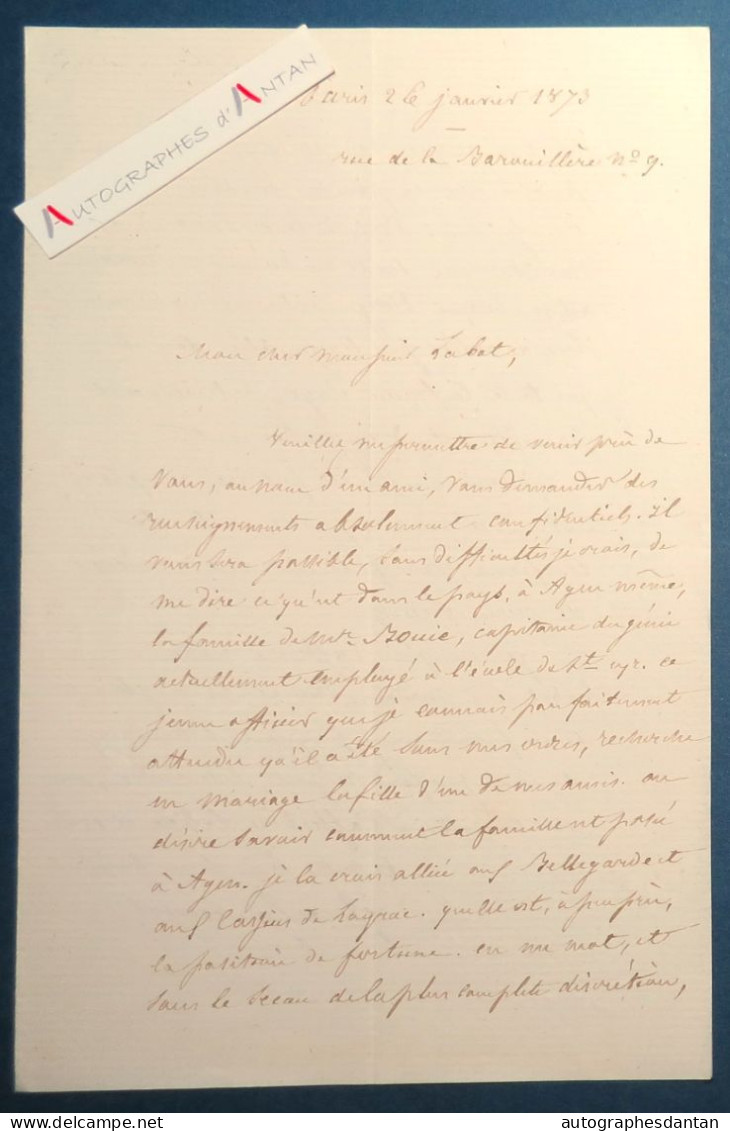 AUTOGRAPHES d'ANTAN
Paris 26 janvier 1873
rue de la Barouillère No 9.
Mon cher monsieur Labat,
Veuillez me permettre de venir près de
vous, au nom d'un ami, vous demander des
renseignements absolument confidentiels. il
vous sera possible, sans difficultés je crois, de
me dire ce qu'est dans le pays, à Agen même,
la famille de Mr. Bouic, capitaine du génie
actuellement employé à l'école de St. cyr. ce
jeune officier que je connais parfaitement
attendu qu'il a été sous mes ordres, recherche
en mariage la fille d'un de mes amis. on
désire savoir comment la famille est posée
à Agen. je la crois alliée aux Bellegarde et
aux de Layrac. quelle est, à peu près,
la position de fortune. en un mot, et
sous le sceau de la plus complète discrétion,
delcampe.net
autographesdantan